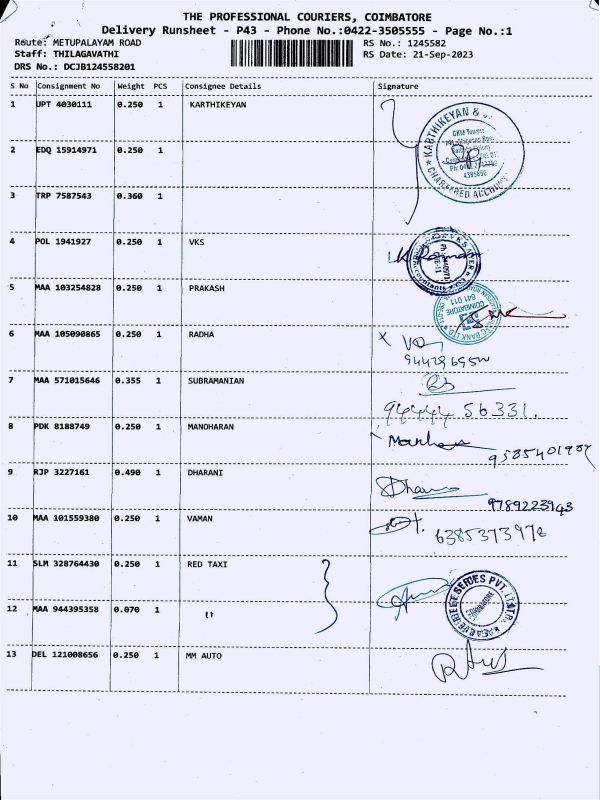 THE PROFESSIONAL COURIERS, COIMBATORE
Delivery Runsheet - P43 - Phone No.:0422-3505555 - Page No.:1
Route: METUPALAYAM ROAD RS No.: 1245582
Staff: THILAGAVATHI RS Date: 21-Sep-2023
DRS No.: DCJB124558201
S No Consignment No Weight PCS Consignee Details Signature
1 UPT 4030111 0.250 1 KARTHIKEYAN
KARTHIKEYAN &
CHARTERED ACCOUN
2 EDQ 15914971 0.250 1
3 TRP 7587543 0.360 1
4 POL 1941927 0.250 1 VKS
5 MAA 103254828 0.250 1 PRAKASH
COIMBATORE
641 011
6 MAA 105090865 0.250 1 RADHA
7 MAA 571015646 0.355 1 SUBRAMANIAN
94444 56331.
8 PDK 8188749 0.250 1 MANOHARAN
9 RJP 3227161 0.490 1 DHARANI
9789223943
10 MAA 101559380 0.250 1 VAMAN
11 SLM 328764430 0.250 1 RED TAXI
12 MAA 944395358 0.070 1 "
COIMBATORE
13 DEL 121008656 0.250 1 MM AUTO